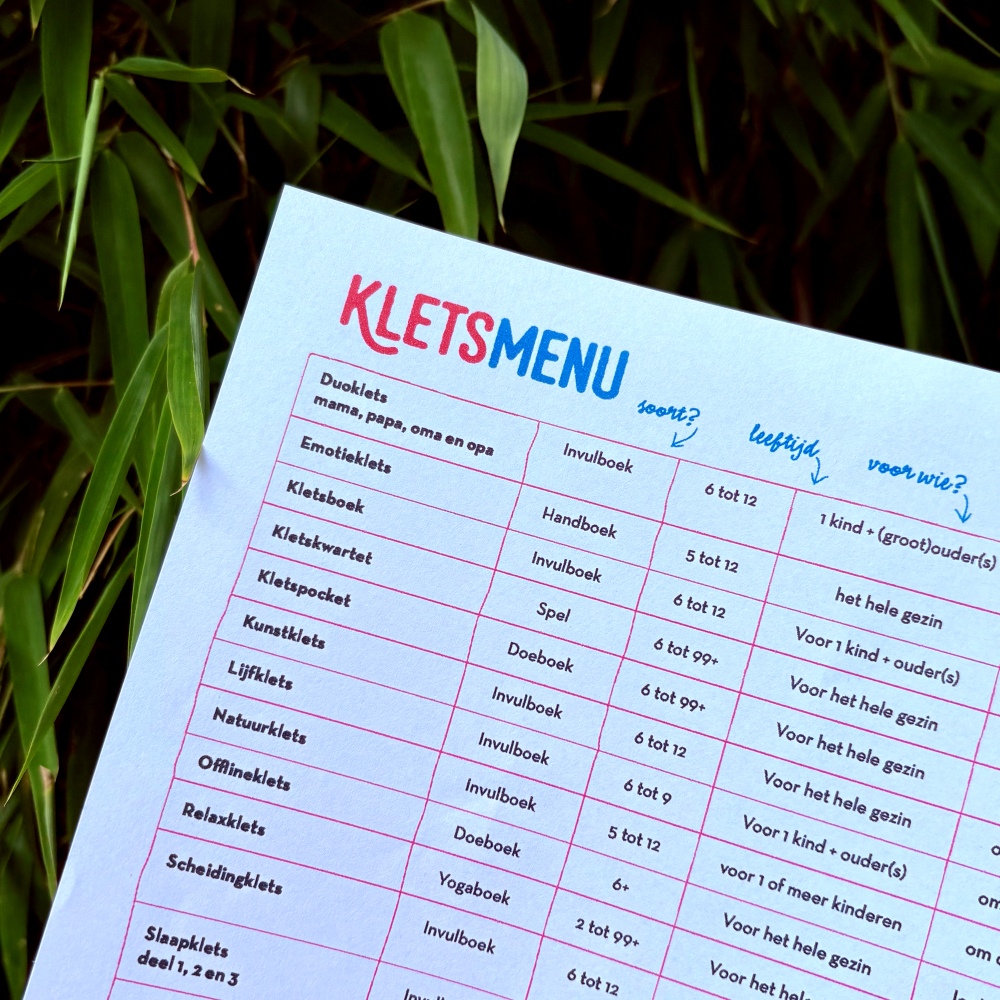 KLETSMENU
soort? leeftijd voor wie?
Duoklets
mama, papa, oma en opa Invulboek 6 tot 12 1 kind + (groot)ouder(s)
Emotieklets Handboek 5 tot 12 het hele gezin
Kletsboek Invulboek 6 tot 12 Voor 1 kind + ouder(s)
Kletskwartet Spel 6 tot 99+ Voor het hele gezin
Kletspocket Doeboek 6 tot 99+ Voor het hele gezin
Kunstklets Invulboek 6 tot 12 Voor het hele gezin
Lijfklets Invulboek 6 tot 9 Voor 1 kind + ouder(s)
Natuurklets Invulboek 5 tot 12 voor 1 of meer kinderen
Offlineklets Doeboek 6+ Voor het hele gezin om
Relaxklets Yogaboek 2 tot 99+ Voor het hele
Scheidingklets Invulboek 6 tot 12
Slaapklets
deel 1, 2 en 3